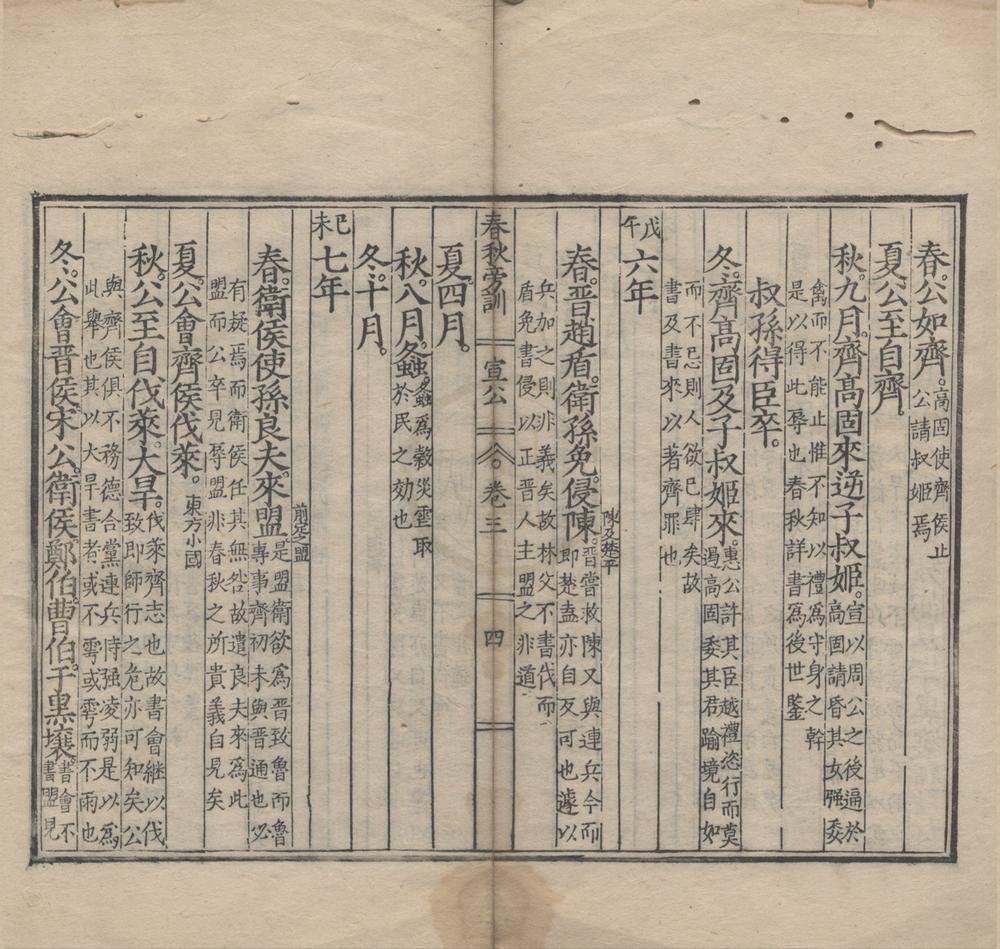 春。公如齊。高固使齊侯止公請叔姬焉
夏公至自齊。
秋。九月。齊高固來逆子叔姬。宣以周公之後逼於高固請昏其女强委
禽而不能止惟不知以禮為守身之幹是以得此辱也春秋詳書為後世鑒
叔孫得臣卒。
冬。齊高固及子叔姬來。惠公許其臣越禮恣行而莫遏高固委其君踰境自如
而不忌則人欲已肆矣故書及書來以著齊罪也
戊午
六年
春。晉趙盾。衛孫免。侵陳。陳及楚平
晉嘗救陳又與連兵今而即楚盍亦自反可也遽以
兵加之則非義矣故林父不書伐而盾免書侵以正晉人主盟之非道
春秋旁訓 宣公 卷三 四
夏四月。
秋。八月。螽螽為穀災虐取於民之効也
冬。十月。
己未
七年
春。衛侯使孫良夫。來盟 前定之盟
是盟衛欲為晉致魯而魯專事齊初未與晉通也必
有疑焉而衛侯任其無咎故遣良夫來為此盟而公卒見辱盟非春秋之所貴義自見矣
夏。公會齊侯伐萊。東方小國
秋。公至自伐萊。大旱。伐萊齊志也故書會繼以伐致即師行之危亦可知矣公
與齊侯俱不務德合黨連兵恃强凌弱是以為此舉也其以大旱書者或不雩或雩而不雨也
冬。公會晉侯。宋公。衛侯。鄭伯。曹伯。于黑壤。書會不書盟見